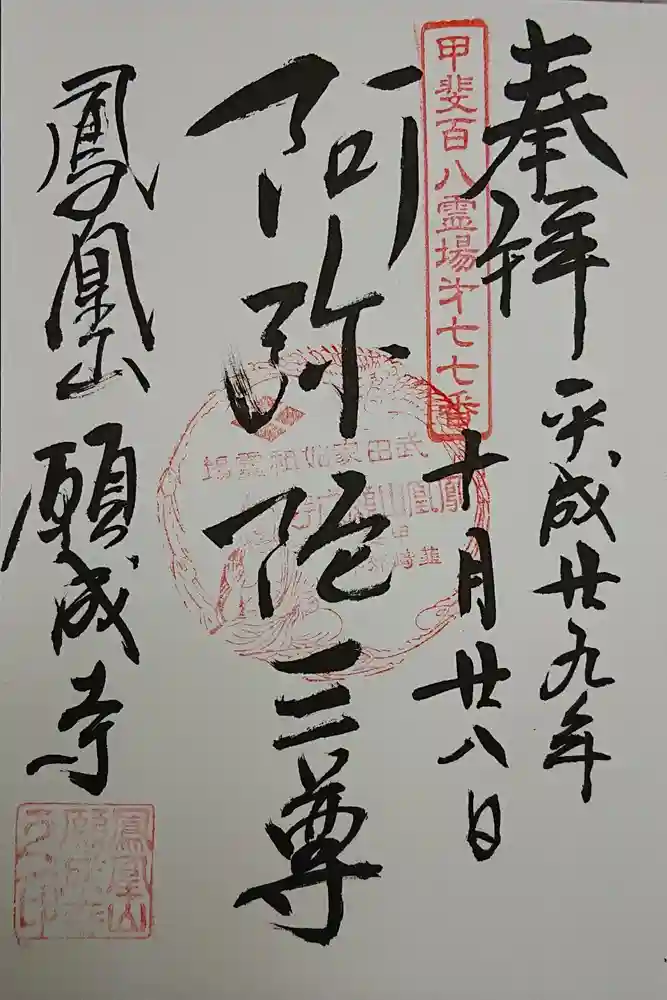 奉拝
平成廿九年
十月廿八日
甲斐百八霊場第七七番
阿弥陀三尊
武田家祖霊場
鳳凰山願成寺
鳳凰山
願成寺